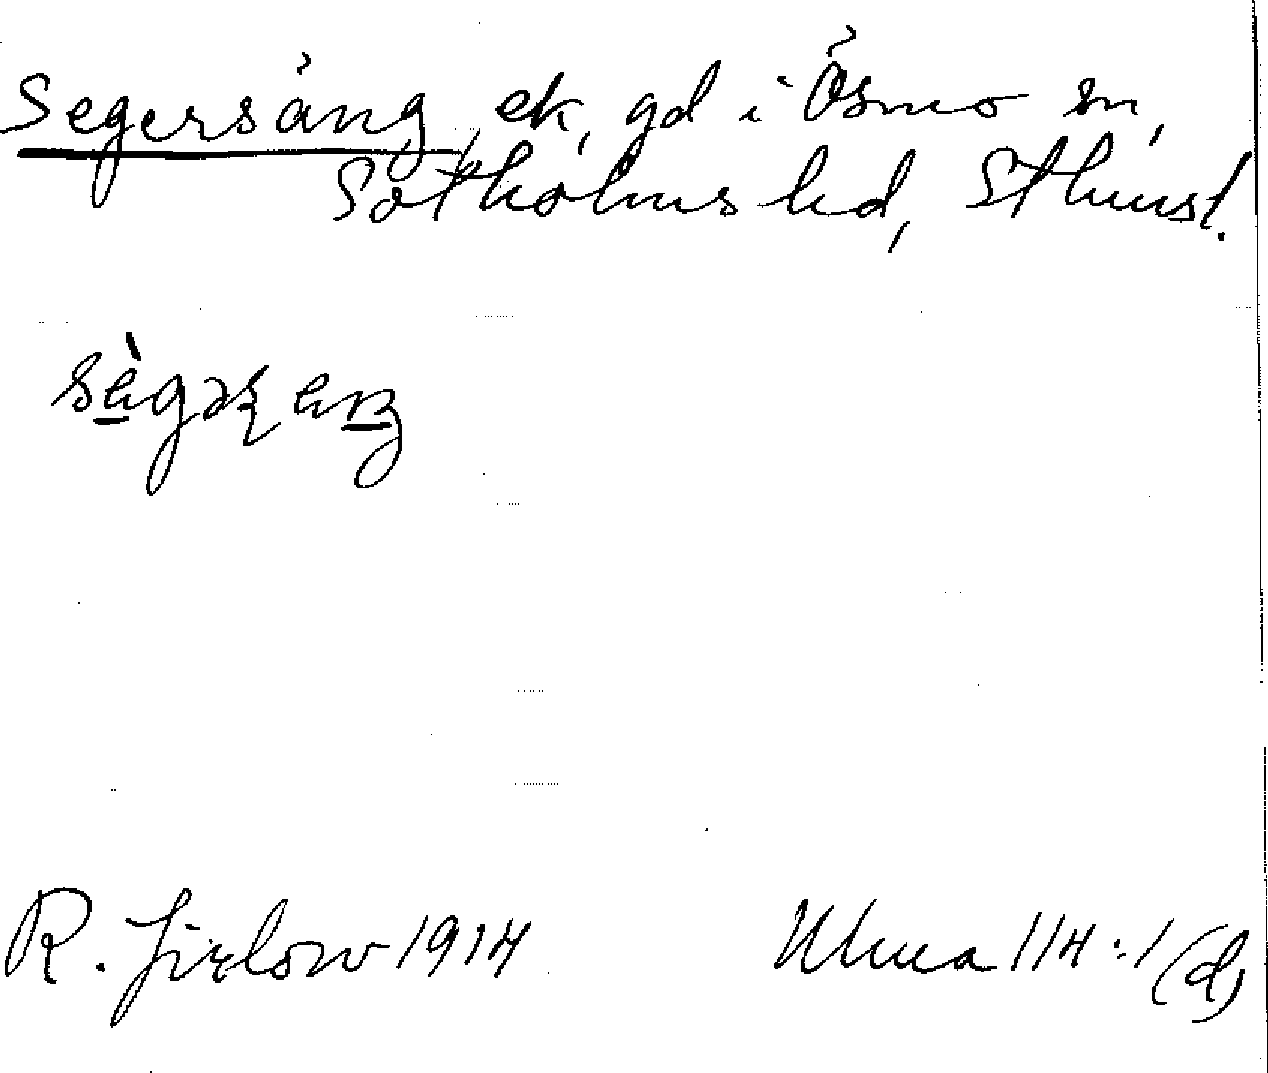 Segersäng, ek, gd i Ösmo sn,
Sotholms hd, Sthmsl.
sègəreŋ
R. Jirlow 1914
Ulma 114:1 (d)